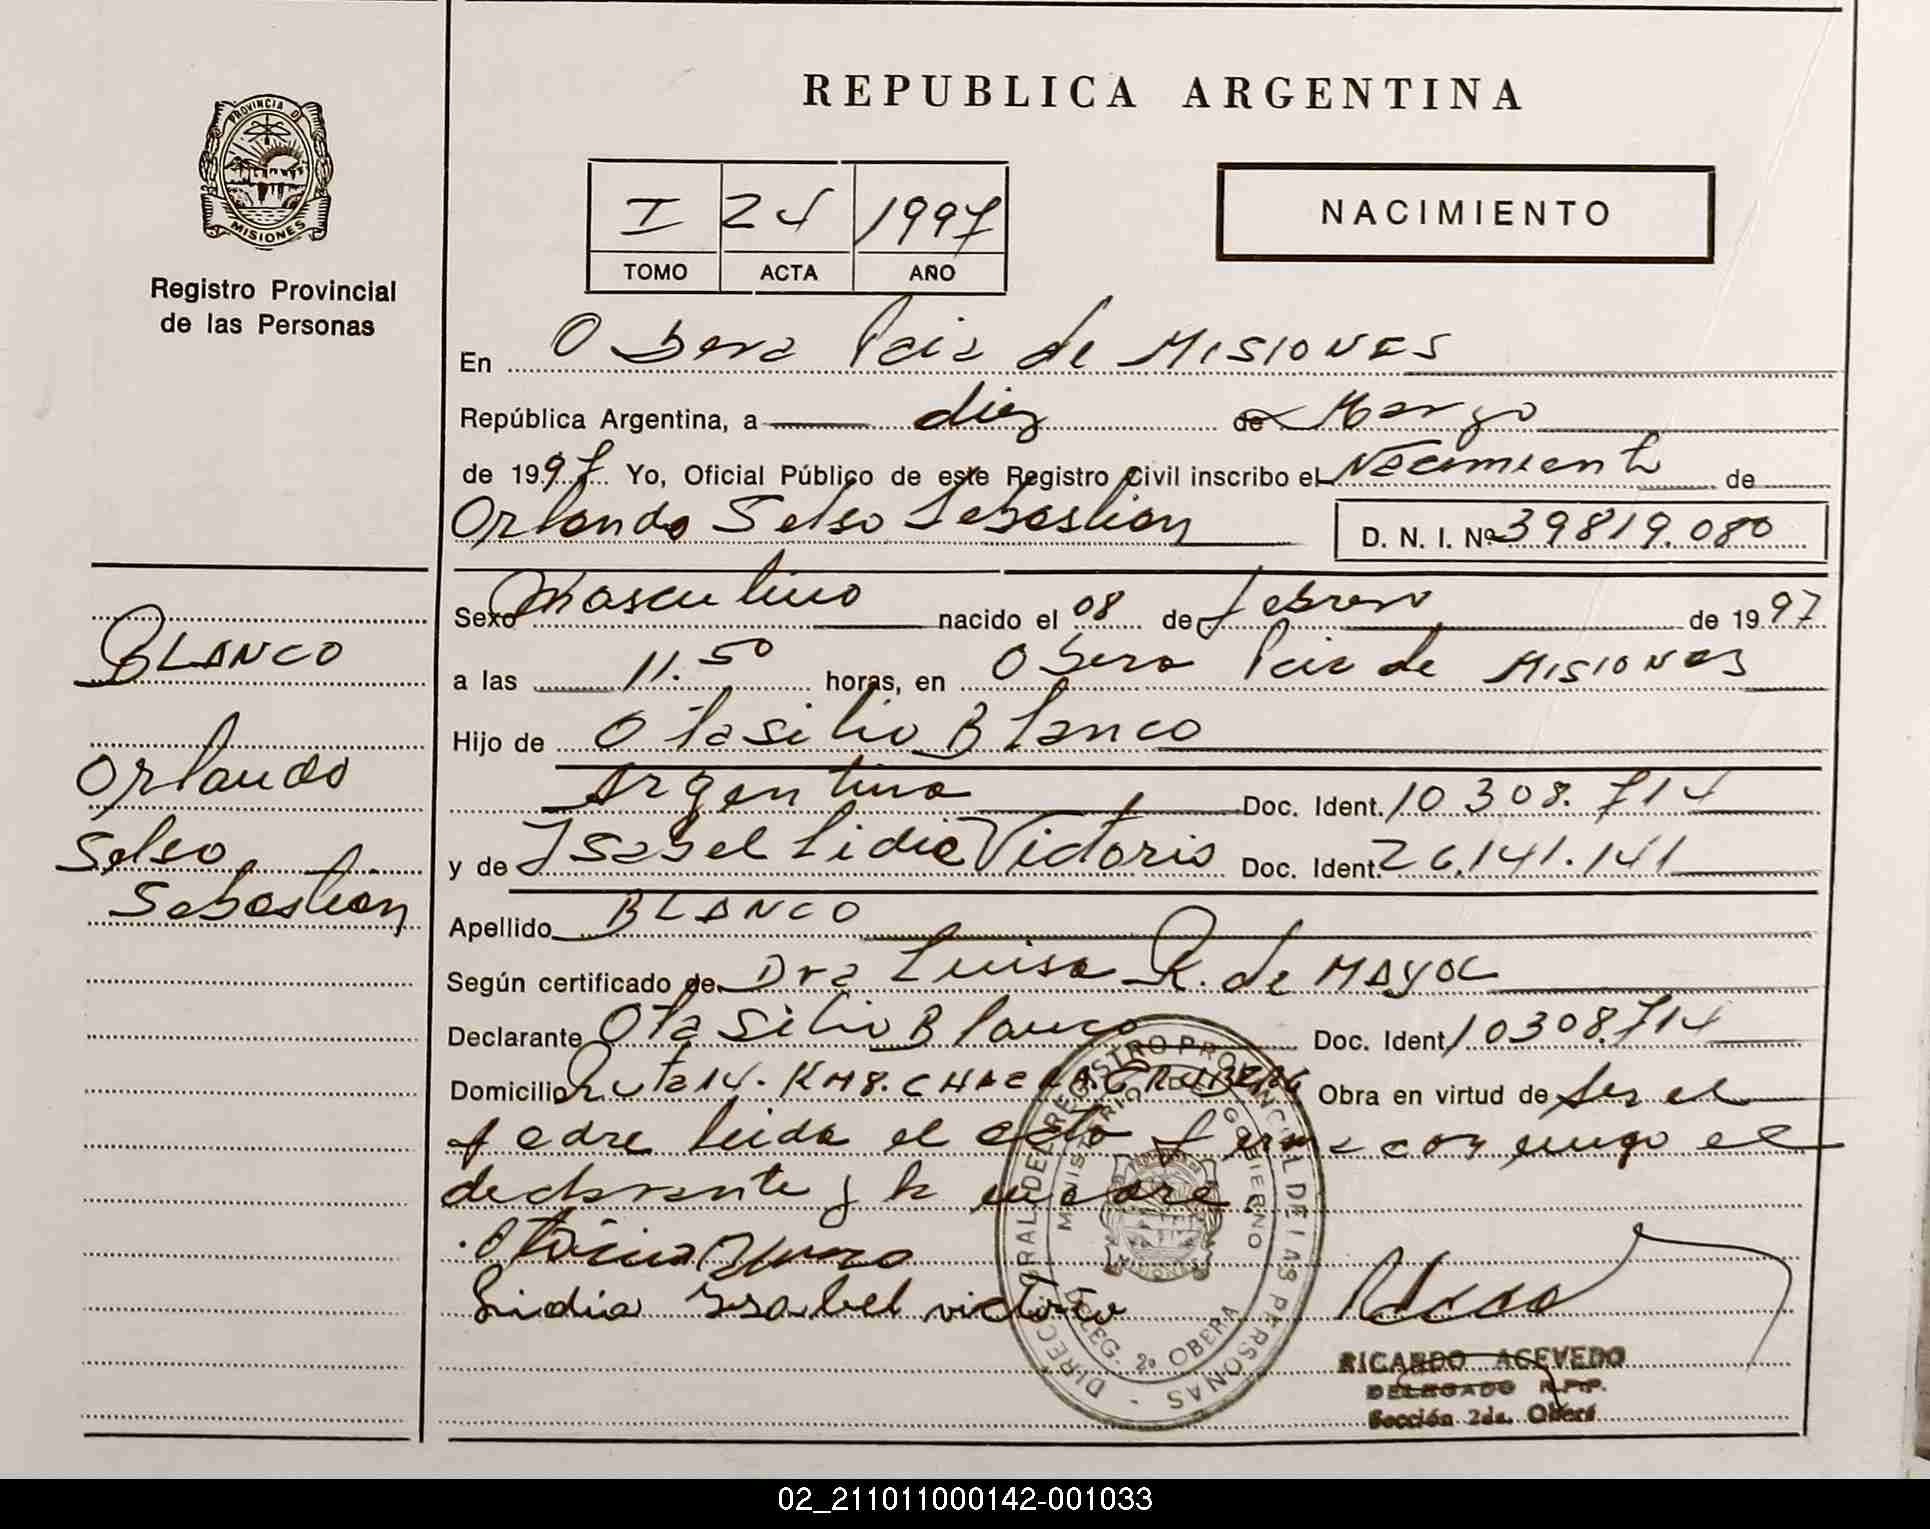 REPUBLICA ARGENTINA
PROVINCIA DE
MISIONES
Registro Provincial
de las Personas
I 24 1997
TOMO ACTA AÑO
NACIMIENTO
En Obera Pcia de MISIONES
República Argentina, a diez de Marzo
de 1997 Yo, Oficial Público de este Registro Civil inscribo el Nacimiento de
Orlando Selso Sebastian D. N. I. Nº 39819.080
Sexo Masculino nacido el 08 de febrero de 1997
a las 11.50 horas, en Obera Pcia de MISIONES
Hijo de Otasilio Blanco
Argentina Doc. Ident. 10308.714
y de Isabel Lidia Victorio Doc. Ident. 26.141.141
Apellido BLANCO
Según certificado de Dra Luisa R. de
Declarante Otasilio Blanco Doc. Ident. 10308.714
Domicilio Ruta 14. KM8. Obra en virtud de ser el
padre leida el acta firma conmigo el
declarante y la madre.
Lidia Ysabel victorio
BLANCO
Orlando
Selso
Sebastian
DIREC. GRAL. DEL REGISTRO PROVINCIAL DE LAS PERSONAS
MINISTERIO DE GOBIERNO
DELEG. 2ª OBERA
RICARDO ACEVEDO
DELEGADO R.P.P.
Sección 2da. Oberá
02_211011000142-001033